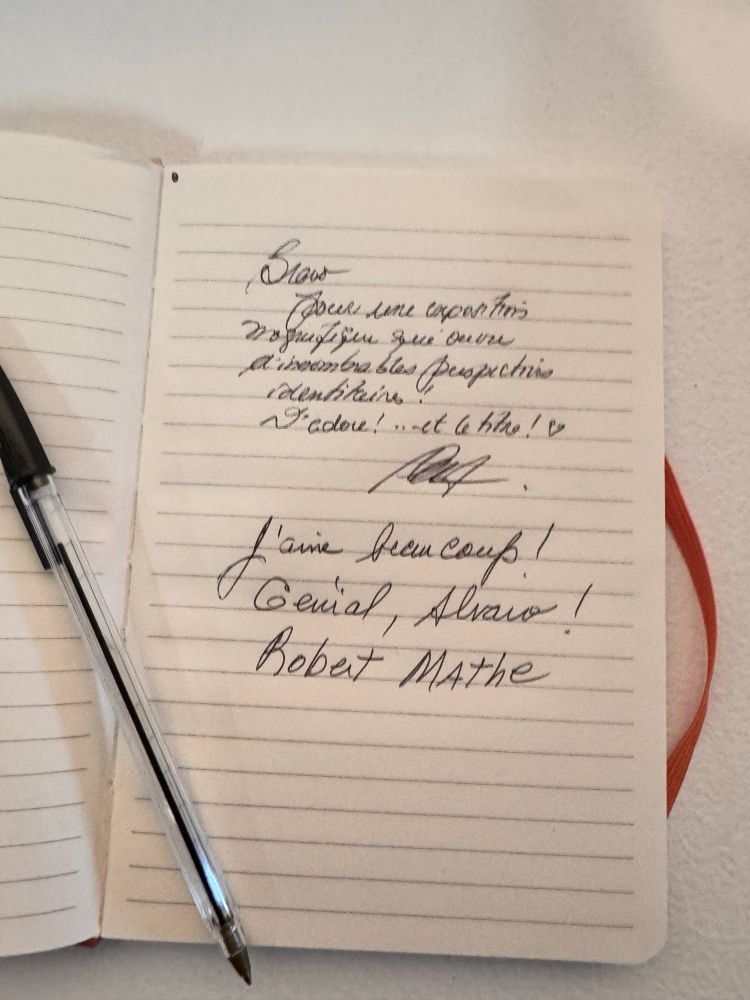 Bravo
pour une exposition
magnifique qui ouvre
d'innombrables perspectives
identitaires !
J'adore ! ... et le titre ! ♡
J'aime beaucoup !
Génial, Alvaro !
Robert MAthe